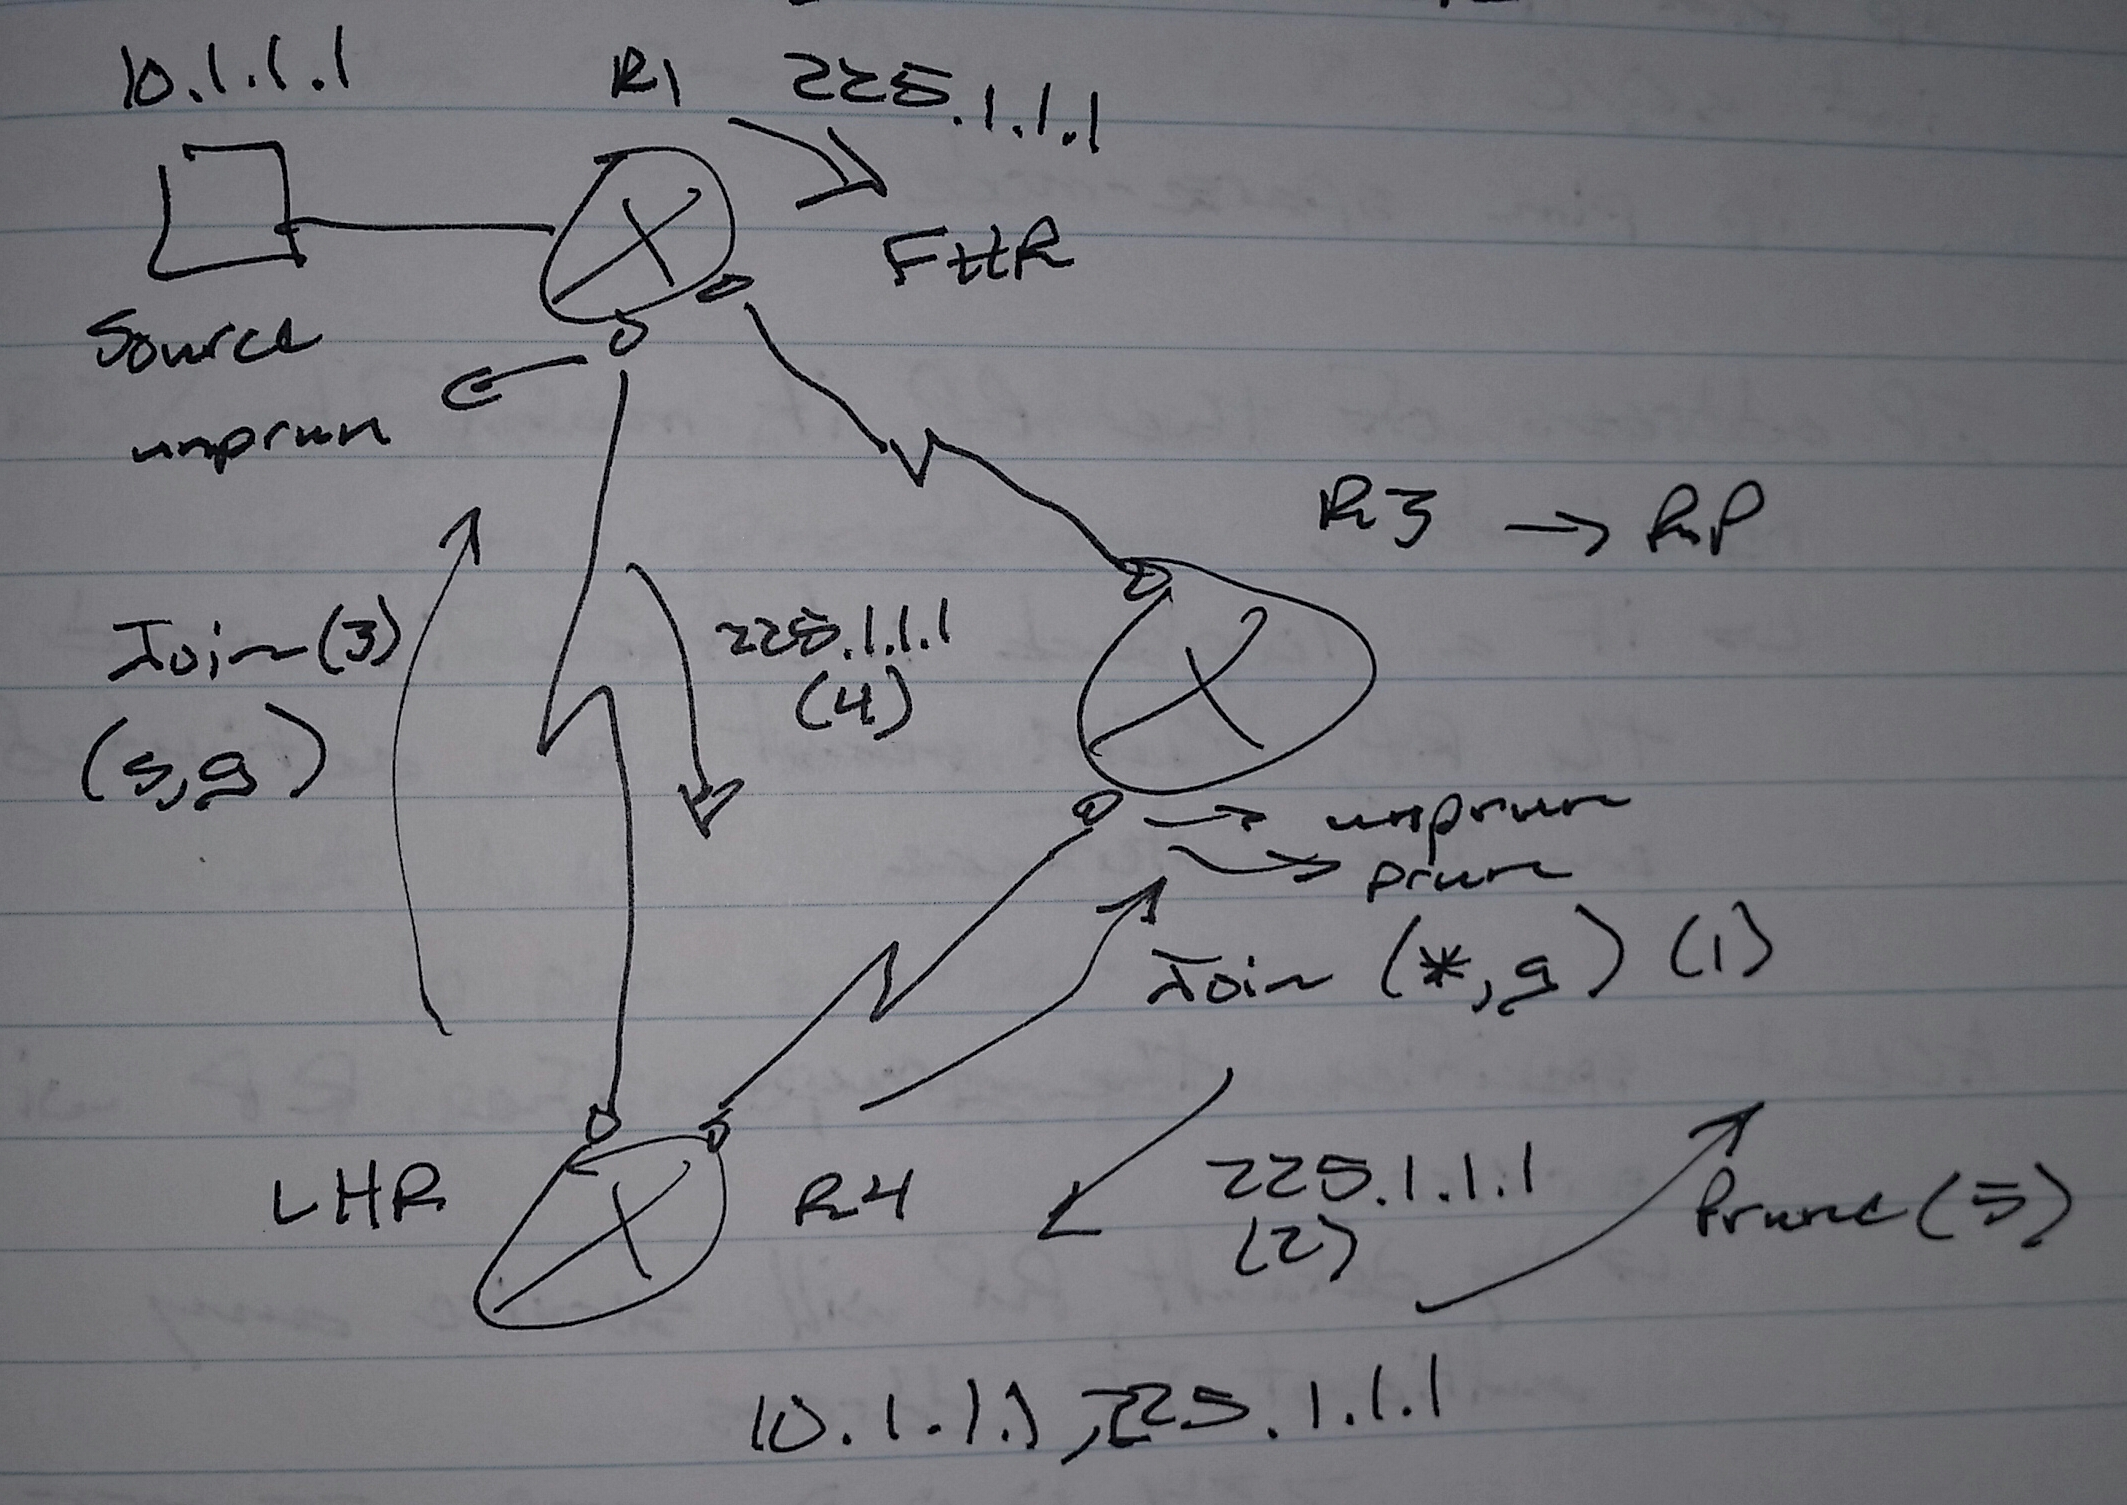 10.1.1.1
R1 225.1.1.1
FHR
Source
unprun
R3 → RP
Join (3)
(s,g)
225.1.1.1
(4)
unprun
prun
Join (*,g) (1)
LHR
R4
225.1.1.1
(2)
Prune (5)
10.1.1.1, 225.1.1.1